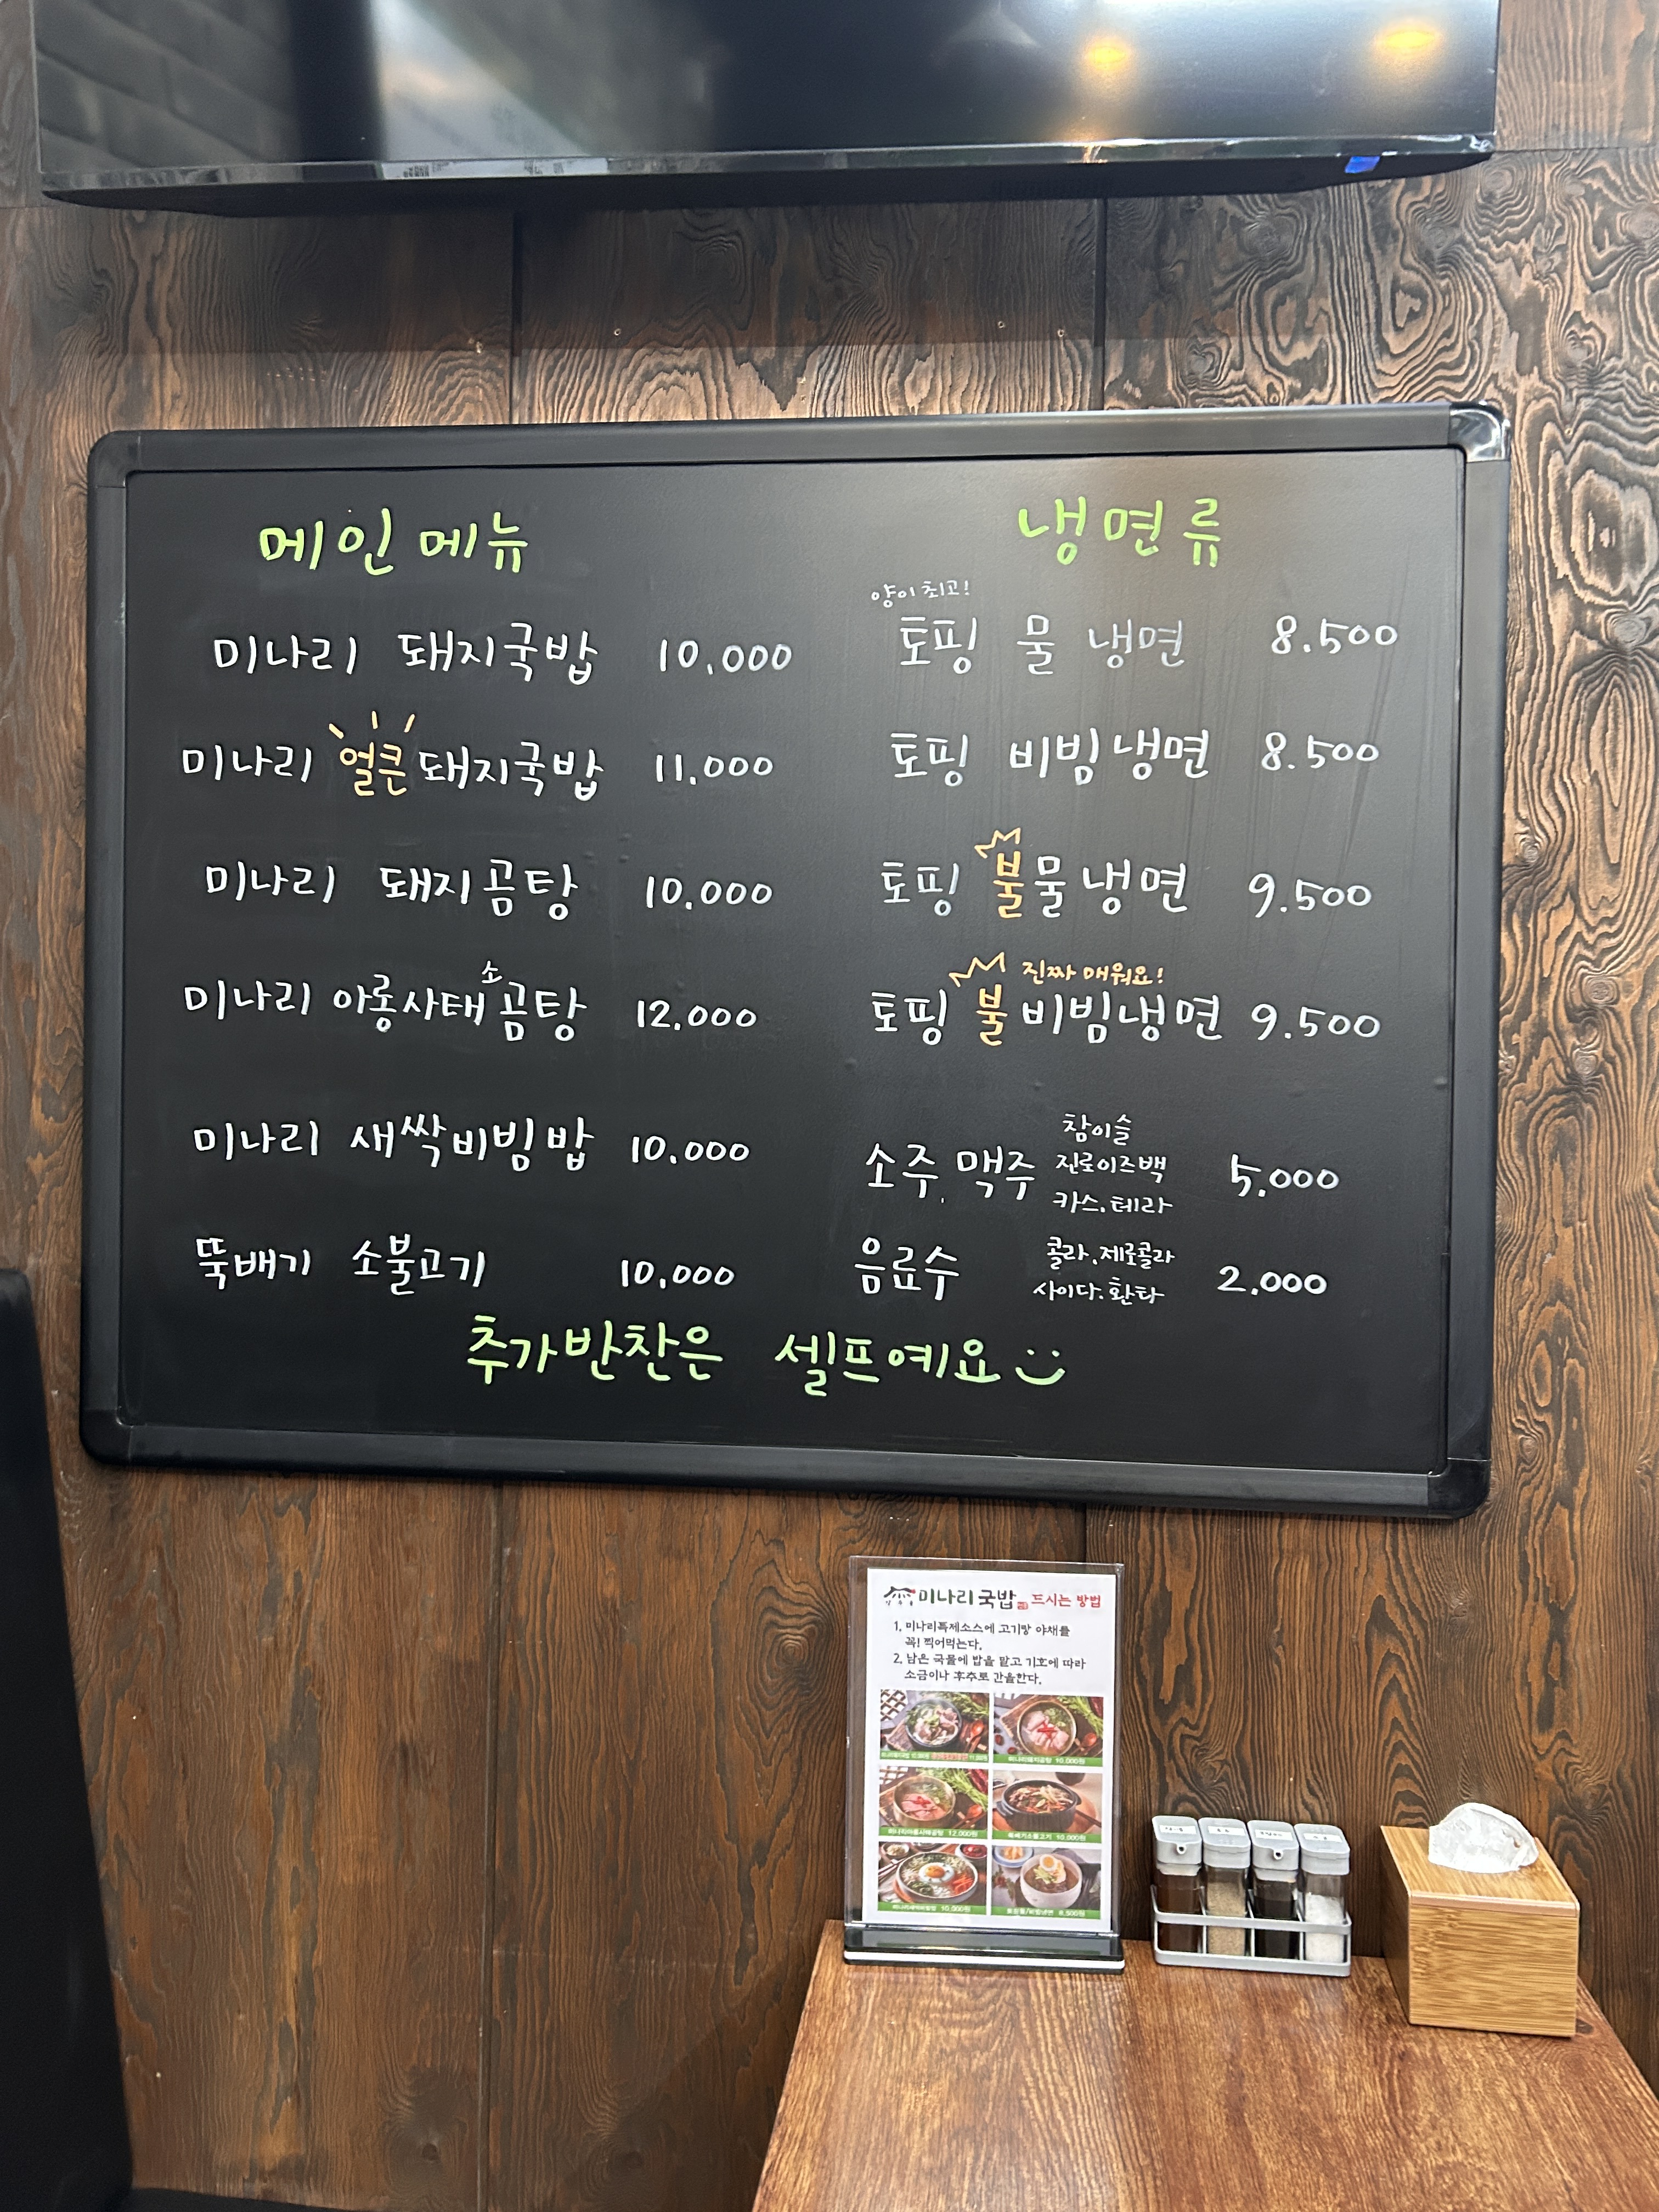 메인메뉴
미나리 돼지국밥 10,000
미나리 얼큰 돼지국밥 11,000
미나리 돼지곰탕 10,000
미나리 아롱사태 소 곰탕 12,000
미나리 새싹비빔밥 10,000
뚝배기 소불고기 10,000
냉면류
양이 최고!
토핑 물 냉면 8.500
토핑 비빔냉면 8.500
토핑 불물냉면 9.500
진짜 매워요!
토핑 불비빔냉면 9.500
소주, 맥주 5.000
참이슬
진로이즈백
카스.테라
음료수 2.000
콜라.제로콜라
사이다.환타
추가반찬은 셀프예요
미나리국밥 드시는 방법
1. 미나리특제소스에 고기랑 야채를
꼭! 찍어먹는다.
2. 남은 국물에 밥을 말고 기호에 따라
소금이나 후추로 간을한다.
미나리돼지곰탕 10,000원
12,000원
뚝배기소불고기 10,000원
10,000원
8,500원